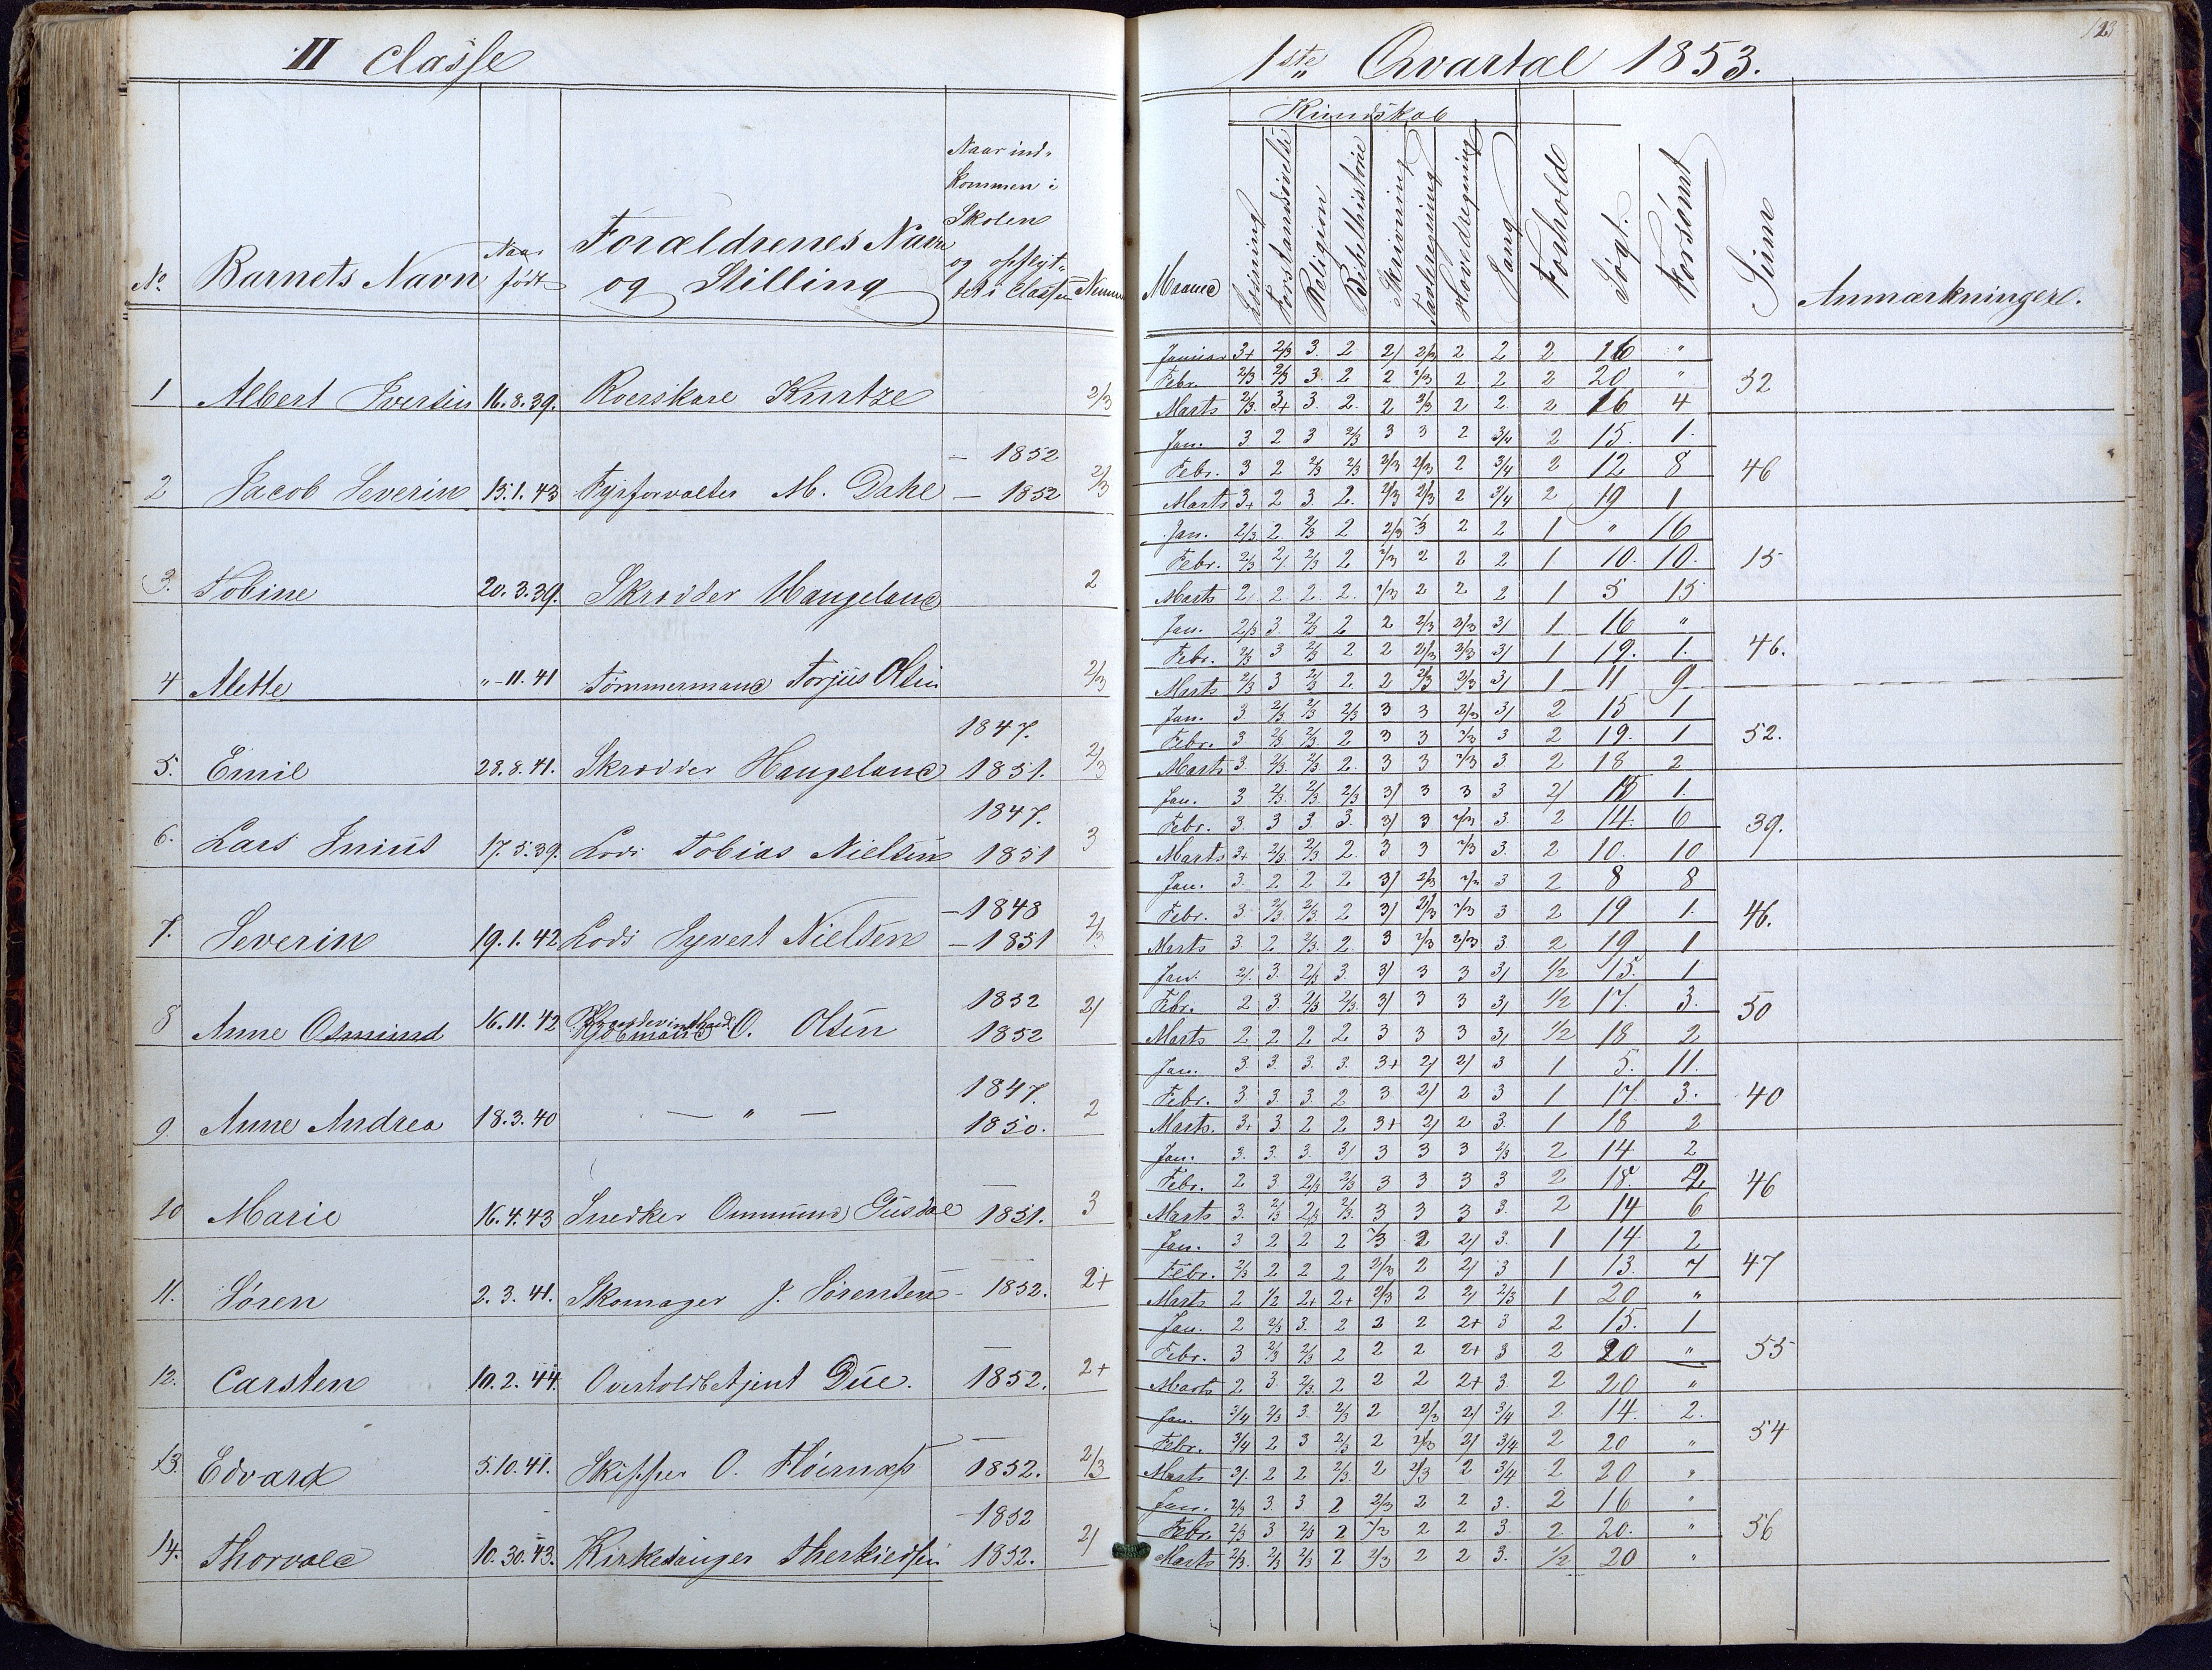 II Classe
No.
Barnets Navn
Naar født
Forældrenes Navn og Stilling
Naar ind-
kommen i
Skolen
og opflyt-
tet i Classen
1 Albert Iversen 16.8.39. Roerskare Kurtze 2/3
– 1852
2 Jacob Severin 15.1.43 Fyrforvalter M. Dahl – 1852 2/3
3. Tobine 20.3.39. Skrædder Haugeland 2
4 Mette "-11.41 Tømmermand Torjus Olsen 2/3
1847.
5. Emil 28.8.41. Skrædder Haugeland 1851. 2/3
1847.
6. Lars Junius 17.5.39. Lods Tobias Nielsen 1851 3
– 1848
7. Severin 19.1.42 Lods Syvert Nielsen – 1851 2/3
1852
8 Anne Osmund 16.11.42 O. Olsen 1852 2/
1847.
9. Anne Andrea 18.3.40 — " — 1850. 2
10 Marie 16.4.43 Snedker Ommund Gusdal 1851. 3
11. Søren 2.3.41. Skomager J. Sørensen – 1852. 2+
12. Carsten 10.2.44. Overtoldbetjent Due. 1852. 2+
13. Edvard 5.10.41. Skipper O. 1852. 2/3
1852
14. Thorvald 10.30.43. Kirkesanger Therkildsen 1852. 2/
123
1ste Qvartal 1853.
Kundskab
Maaned
Læsning
Forstandsøvelse
Religion
Bibelhistorie
Skrivning
Tavleregning
Hovedregning
Sang
Forhold
Søgt.
Forsømt
Sum
Anmærkninger.
Januar 3+ 2/3 3. 2 2/ 2/3 2 2 2 16 "
Febr. 2/3 2/3 3. 2 2 2/3 2 2 2 20 " 52
Marts 2/3. 3+ 3. 2. 2 2/3 2 2 2 16 4
Jan. 3. 2 3 2/3 3 3 2 3/4 2 15. 1.
Febr. 3 2 2/3 2/3 2/3 2/3 2 3/4 2 12 8 46
Marts 3+ 2 3. 2. 2/3 2/3 2 3/4 2 19 1
Jan. 2/3 2. 2/3 2 2/3 3 2 2 1 " 16
Febr. 2/3 2/ 2/3 2 2/3 2 2 2 1 10. 10. 15
Marts 2 2 2. 2. 2/3 2 2 2 1 5 15
Jan. 2/3 3. 2/3 2 2 2/3 2/3 3/ 1 16 "
Febr. 2/3 3 2/3 2 2 2/3 2/3 3/ 1 19. 1. 46.
Marts 2/3 3 2/3 2 2 2/3 2/3 3/ 1 11 9
Jan. 3. 2/3 2/3 2/3 3 3 2/3 3/ 2 15 1
Febr. 3 2/3 2/3 2 3 3 2/3 3 2 19. 1 52.
Marts 3 2/3 2/3 2. 3 3 2/3 3 2 18 2
Jan. 3 2/3. 2/3. 2/3 3/ 3 3 3 2/ 15 1.
Febr. 3. 3 3. 3. 3/ 3 2/3 3. 2 14. 6 39.
Marts 3+ 2/3 2/3 2. 3 3 2/3 3. 2 10. 10
Jan. 3. 2 2 2 3/ 2/3 2/3 3 2 8 8
Febr. 3. 2/3. 2/3. 2 3/ 2/3 2/3 3 2 19 1. 46.
Marts 3. 2 2/3. 2. 3 2/3 2/3 3. 2 19 1
Jan. 2/. 3. 2/3 3. 3/ 3 3 3/ 1/2 15. 1
Febr. 2 3 2/3 2/3. 3/ 3 3 3/ 1/2 17. 3. 50
Marts 2 2 2 2 3 3 3 3/ 1/2 18 2
Jan. 3. 3. 3. 3. 3+ 2/ 2/ 3 1 5. 11.
Febr. 3. 3. 3. 2 3 2/ 2 3 1 17. 3. 40
Marts. 3. 3 2 2 3+ 2/ 2 3. 1 18 2
Jan. 3. 3. 3. 3/ 3 3 3 2/3 2 14 2
Febr. 2 3. 2/3 2/3 3 3 3 3 2 18. 2 46
Marts 3. 2/3 2/3 2/3. 3 3 3 3. 2 14 6
Jan. 3 2 2 2 2/3 2 2/ 3. 1 14 2
Febr. 2/3 2 2 2 2/3 2 2/ 3 1 13. 7 47
Marts 2 1/2 2+ 2+ 2/3 2 2/ 2/3 1 20 "
Jan. 2 2/3 3. 2 2 2 2+ 3 2 15. 1
Febr. 3 2/3 2/3 2 2 2 2+ 3 2 20 " 55
Marts 2 3. 2/3. 2 2 2 2+ 3. 2 20 "
Jan. 3/4 2/3 3. 2/3 2 2/3 2/ 3/4 2. 14. 2.
Febr. 3/4 2 3 2/3 2 2/3 2/ 3/4 2 20 " 54
Marts 3/. 2 2 2/3. 2 2/3 2 3/4 2 20 "
Jan. 2/3 3. 3. 2 2/3 2 2 3. 2 16 "
Febr. 2/3 3 2/3 2 2/3 2 2 3. 2 20. " 56
Marts 2/3. 2/3 2/3 2 2/3 2 2 3. 1/2 20 "